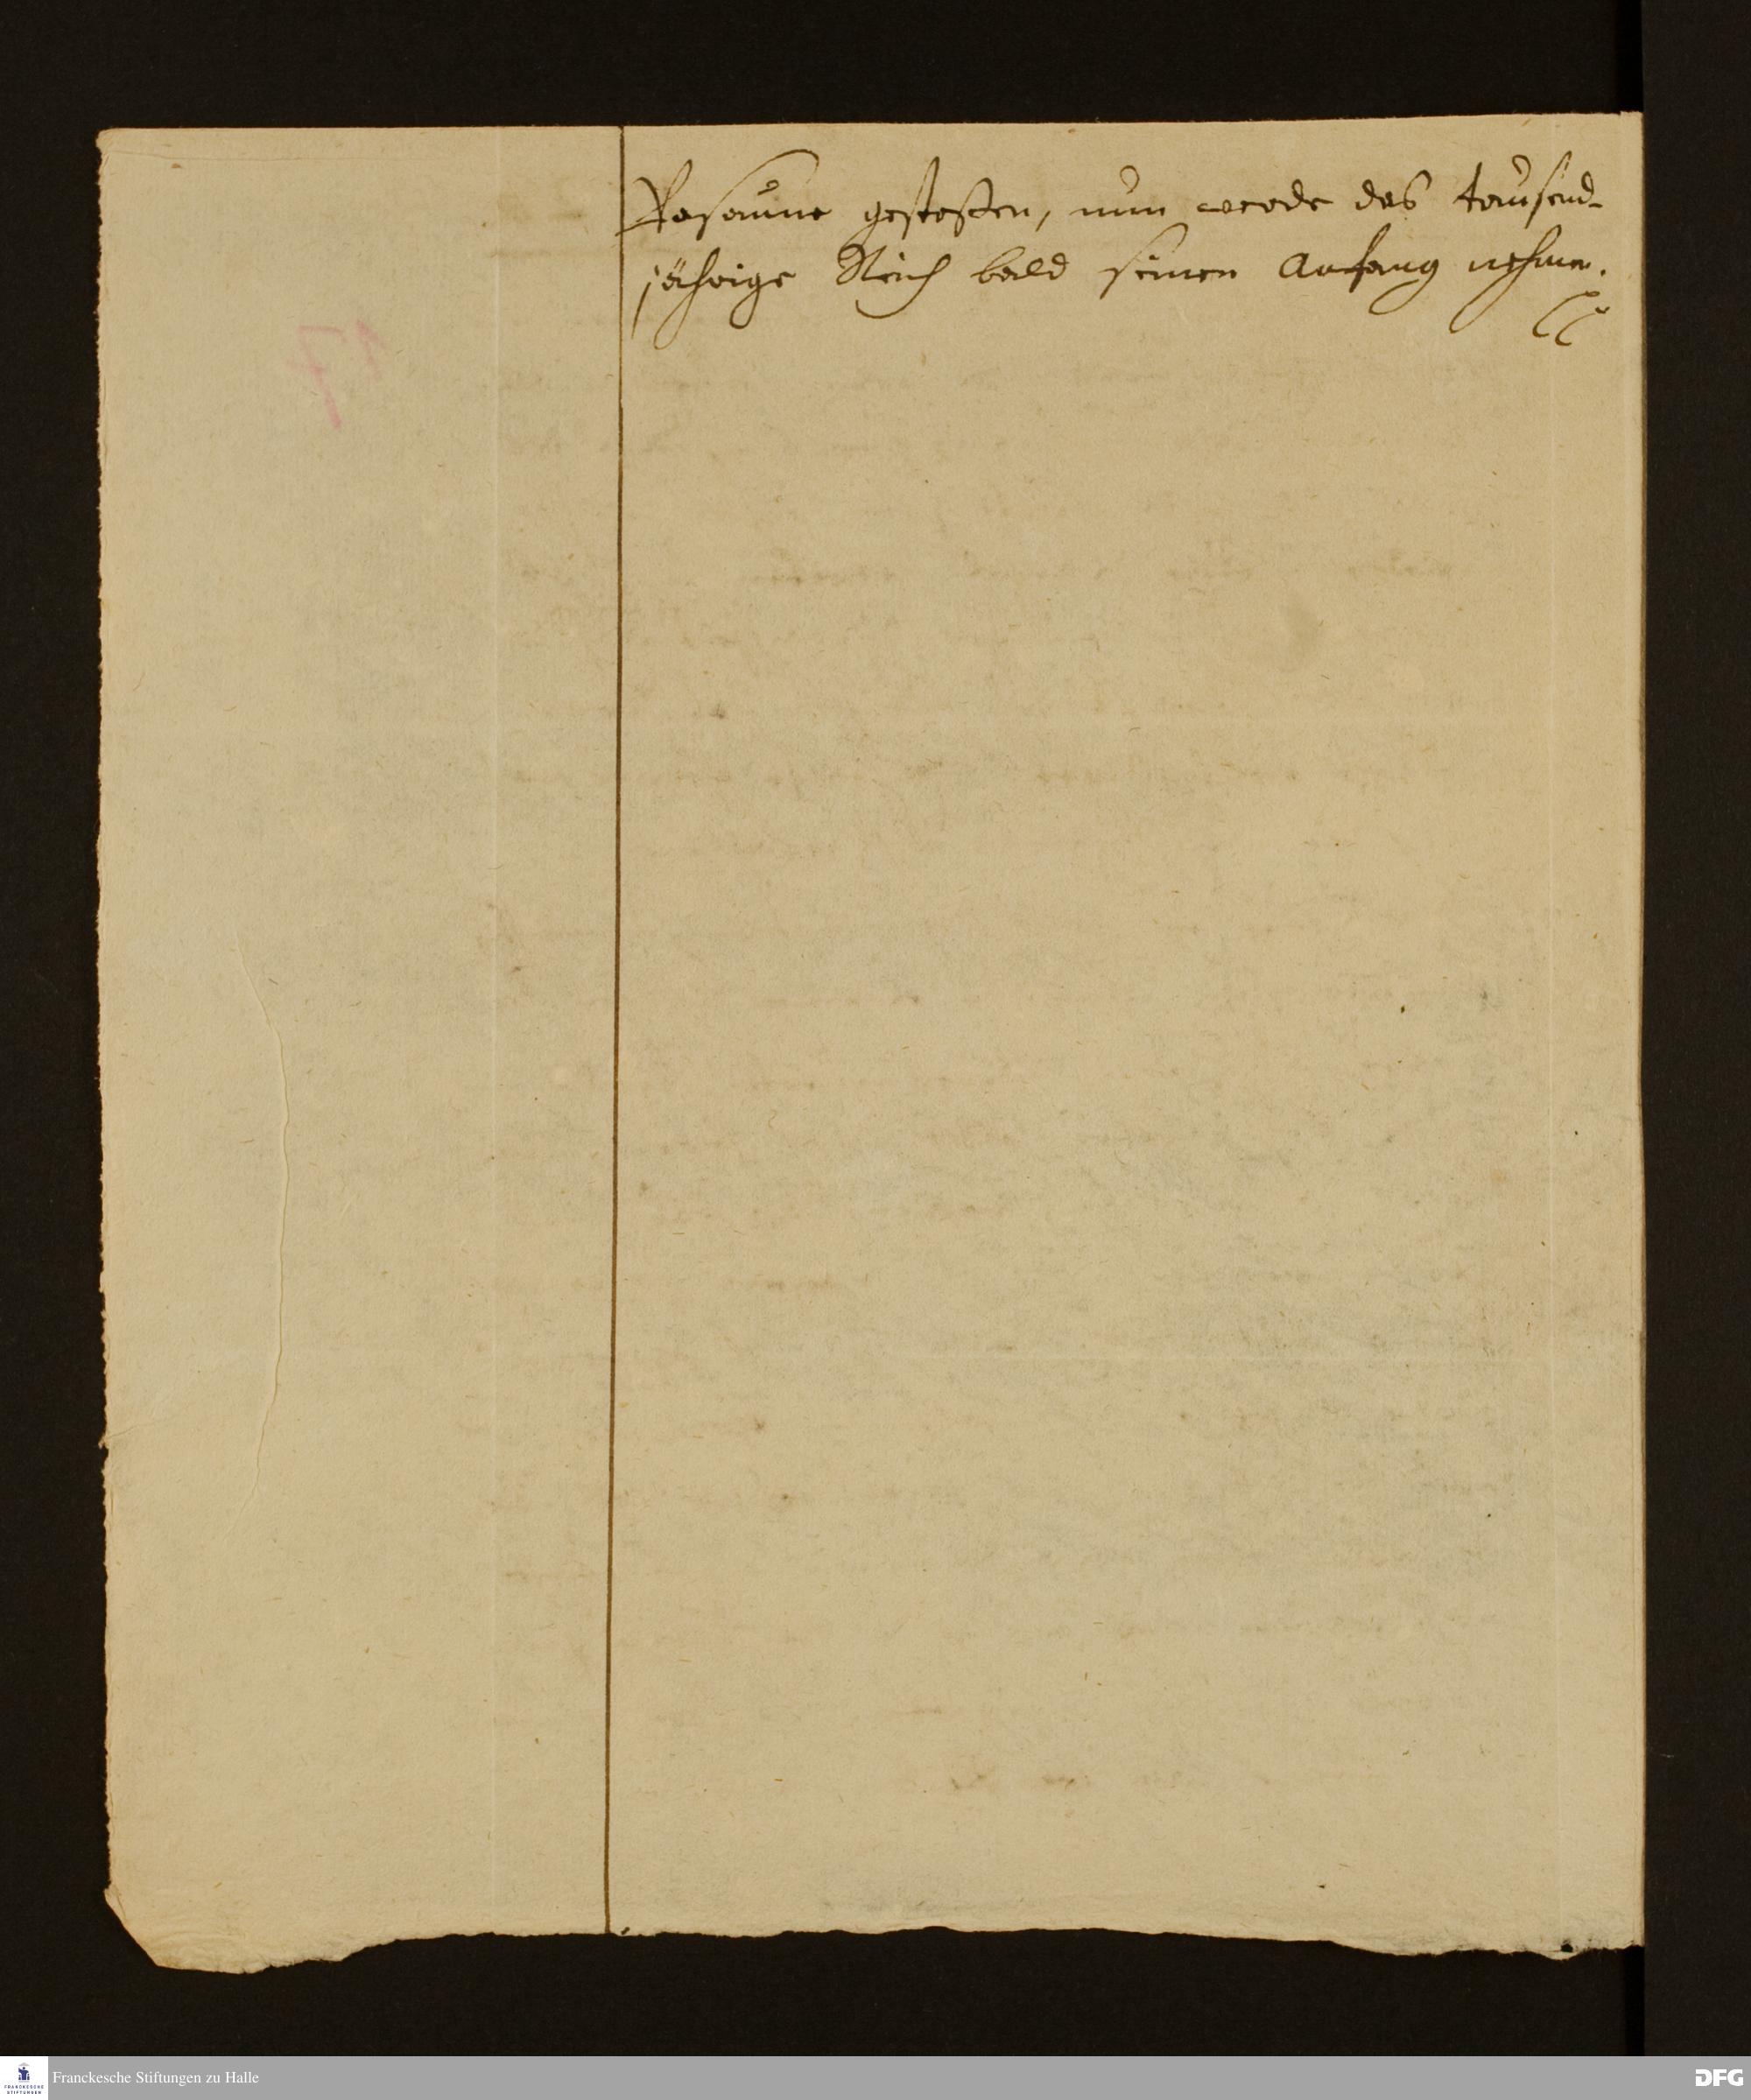 Posaune gestoßen, nun werde das tausend-
jährige Reich bald seinen Anfang nehmen.
17
Franckesche Stiftungen zu Halle
FRANCKESCHE
STIFTUNGEN
DFG